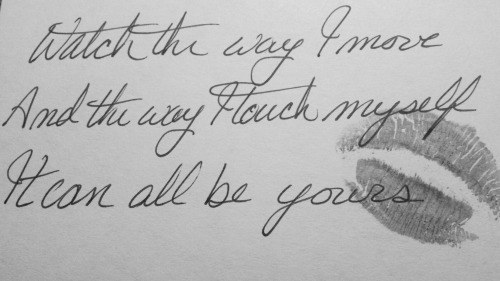 Watch the way I move
And the way I touch myself
It can all be yours